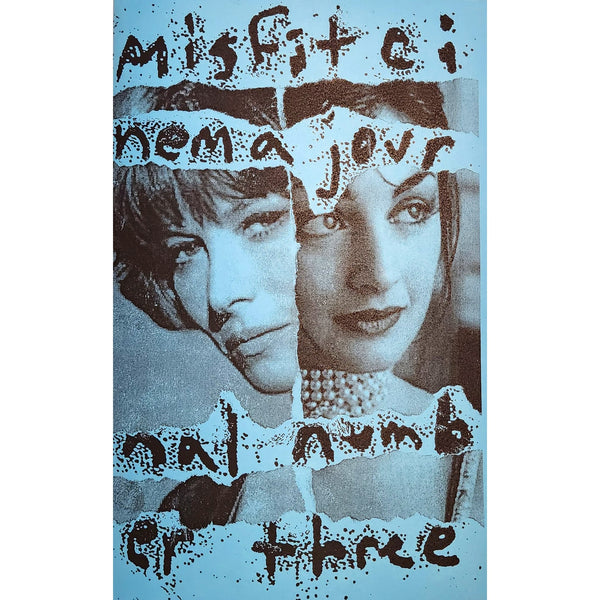 misfit ci
nema jour
nal numb
er three